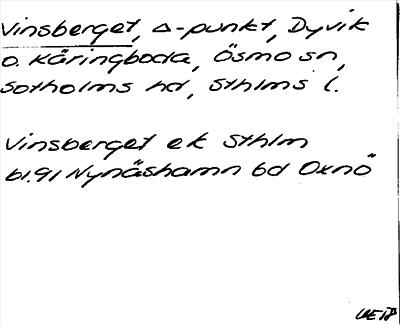 Vinsberget, Δ-punkt, Dyvik
o. Käringboda, Ösmo sn,
Sotholms hd, Sthlms l.
Vinsberget ek Sthlm
bl. 91 Nynäshamn bd Oxnö